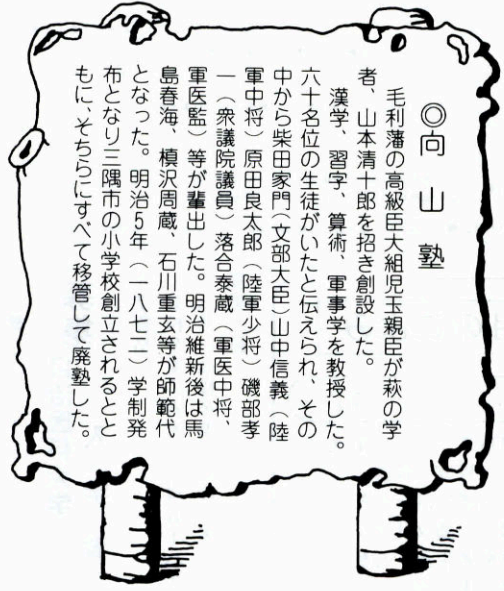 ◎向山塾
毛利藩の高級臣大組児玉親臣が萩の学
者、山本清十郎を招き創設した。
漢学、習字、算術、軍事学を教授した。
六十名位の生徒がいたと伝えられ、その
中から柴田家門(文部大臣)山中信義(陸
軍中将)原田良太郎(陸軍少将)磯部孝
一(衆議院議員)落合泰蔵(軍医中将、
軍医監)等が輩出した。明治維新後は馬
島春海、槙沢周蔵、石川重玄等が師範代
となった。明治5年(一八七二)学制発
布となり三隅市の小学校創立されるとと
もに、そちらにすべて移管して廃塾した。